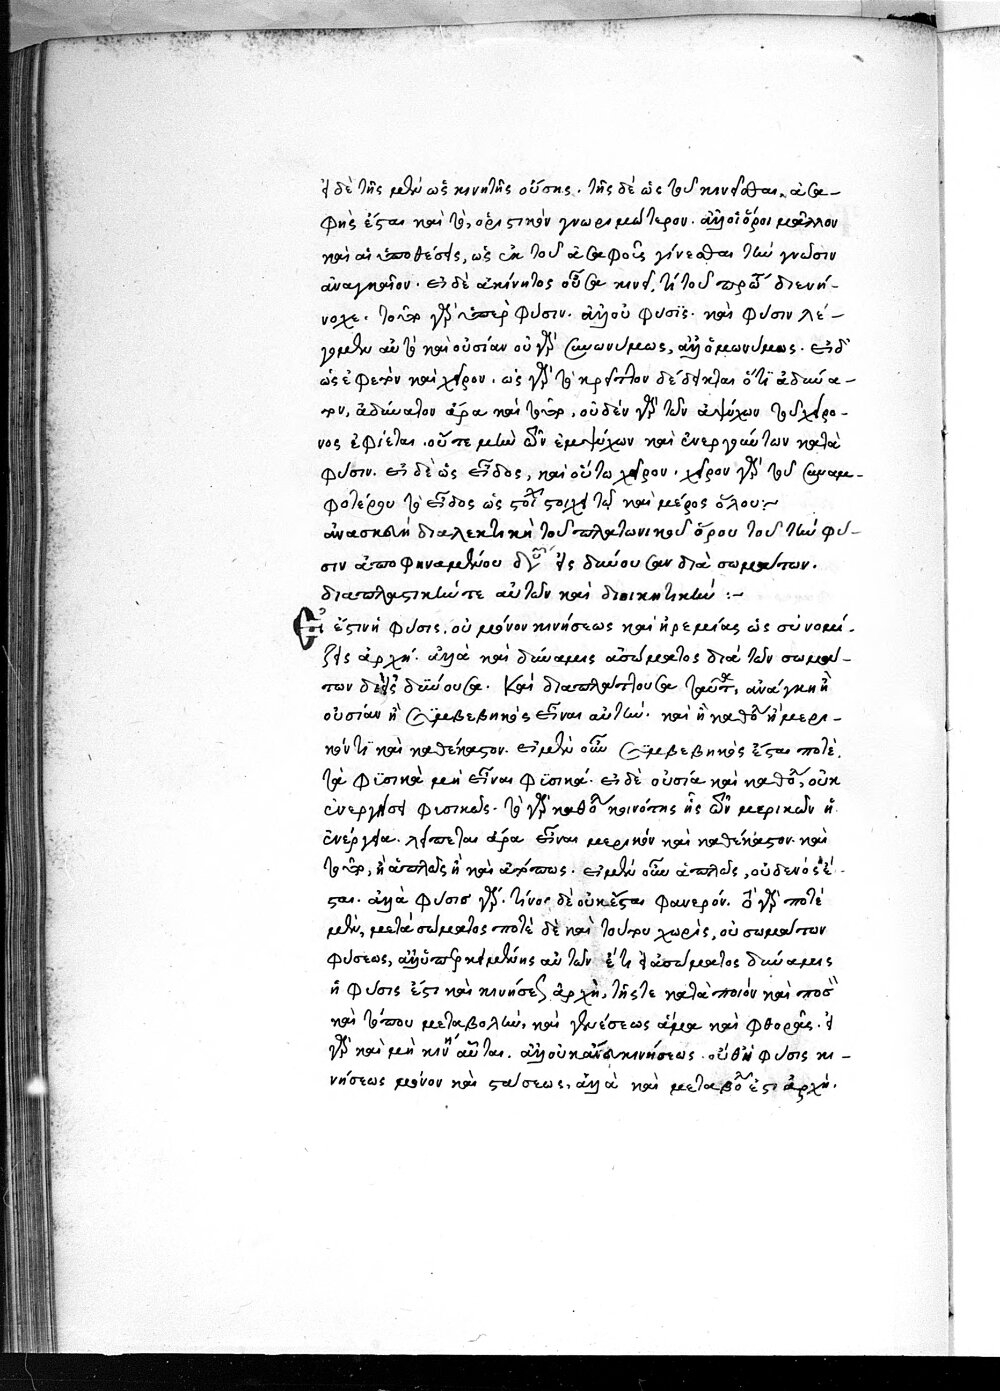 ἢ δὲ τῆς μὲν ὡς κινητῆς οὔσης. τῆς δὲ ὡς τοῦ κινεῖσθαι, ἀσα-
φὴς ἔσται καὶ τὸ, ὁριστικὸν γνωριμώτερον. ἀλλ' οἱ ὅροι μᾶλλον
καὶ αἱ ὑποθέσεις, ὡς ἐκ τοῦ ἀσαφοῦς γίνεσθαι τὴν γνῶσιν
ἀναγκαῖον. εἰ δὲ ἀκίνητος οὖσα κινεῖ, τί τοῦ πρώτου διενή-
νοχε. τοῦτο γὰρ ὑπὲρ φύσιν. ἀλλ' οὐ φύσις. καὶ φύσιν λέ-
γομεν αὐτὸ καὶ οὐσίαν οὐ γὰρ συνωνύμως, ἀλλ' ὁμωνύμως. εἰ δ'
ὡς ἐφετὸν καὶ χεῖρον. ὡς γὰρ τὸ κρεῖττον δέδεικται ὅτι ἀδύνα-
τον, ἀδύνατον ἄρα καὶ τοῦτο, οὐδὲν γὰρ τῶν ἀψύχων τοῦ χείρο-
νος ἐφίεται. οὔτε μὴν τῶν ἐμψύχων καὶ ἐνεργούντων κατὰ
φύσιν. εἰ δὲ ὡς εἶδος, καὶ οὕτω χεῖρον. χεῖρον γὰρ τοῦ συναμ-
φοτέρου τὸ εἶδος ὡς στοιχεῖον στοιχειωτοῦ καὶ μέρος ὅλου:~
ἀνασκευὴ διαλεκτικὴ τοῦ πλατωνικοῦ ὅρου τοῦ τὴν φύ-
σιν ἀποφηναμένου δύναμιν εἶς δύνουσαν διὰ σωμάτων.
διαπλαστικήν τε αὐτῶν καὶ διοικητικήν :~
Εἰ ἔστιν ἡ φύσις, οὐ μόνον κινήσεως καὶ ἠρεμίας ὡς σὺ νομί-
ζεις ἀρχή. ἀλλὰ καὶ δύναμις ἀσώματος διὰ τῶν σωμά-
των δεῖς δύνουσα. Καὶ διαπλάττουσα ταῦτα, ἀνάγκη ἢ
οὐσίαν ἢ συμβεβηκὸς εἶναι αὐτήν. καὶ ἢ καθόλου ἢ μερι-
κόν τι καὶ καθέκαστον. εἰ μὲν οὖν συμβεβηκὸς ἔσται ποτὲ,
τὰ φυσικὰ μὴ εἶναι φυσικά. εἰ δὲ οὐσία καὶ καθόλου, οὐκ
ἐνεργήσει φυσικῶς. τὸ γὰρ καθόλου κοινότης ἧς τῶν μερικῶν ἡ
ἐνέργεια. λείπεται ἄρα εἶναι μερικὸν καὶ καθέκαστον. καὶ
τοῦτο, ἢ ἁπλῶς ἢ καὶ ἀτόπως. εἰ μὲν οὖν ἁπλῶς, οὐδενός ἐ-
σται. ἀλλὰ φύσις γάρ. τίνος δὲ οὐκ ἔσται φανερόν. ὃ γὰρ ποτὲ
μὲν, μετὰ σώματος ποτὲ δὲ καὶ τούτου χωρὶς, οὐ σωμάτων
φύσεως, ἀλλ' ὑπερκειμένης αὐτῶν ἔτι εἰ ἀσώματος δύναμις
ἡ φύσις ἐστὶ καὶ κινήσεως ἀρχὴ, τῆς τε κατὰ ποιὸν καὶ ποσὸν
καὶ τόπου μεταβολὴν, καὶ γενέσεως ἅμα καὶ φθορᾶς. εἰ
γὰρ καὶ μὴ κινήσεις αὗται. ἀλλ' οὐκ ἄνευ κινήσεως. οὐδ' ἡ φύσις κι-
νήσεως μόνον καὶ στάσεως, ἀλλὰ καὶ μεταβολῆς ἐστὶ ἀρχή.